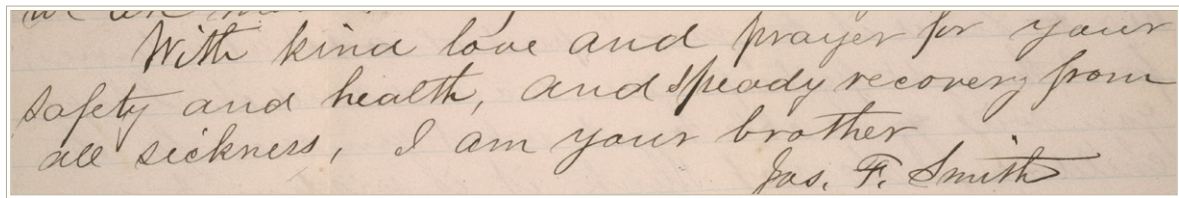 With kind love and prayer for your
safety and health, and speady recovery from
all sickness, I am your brother
Jos. F. Smith